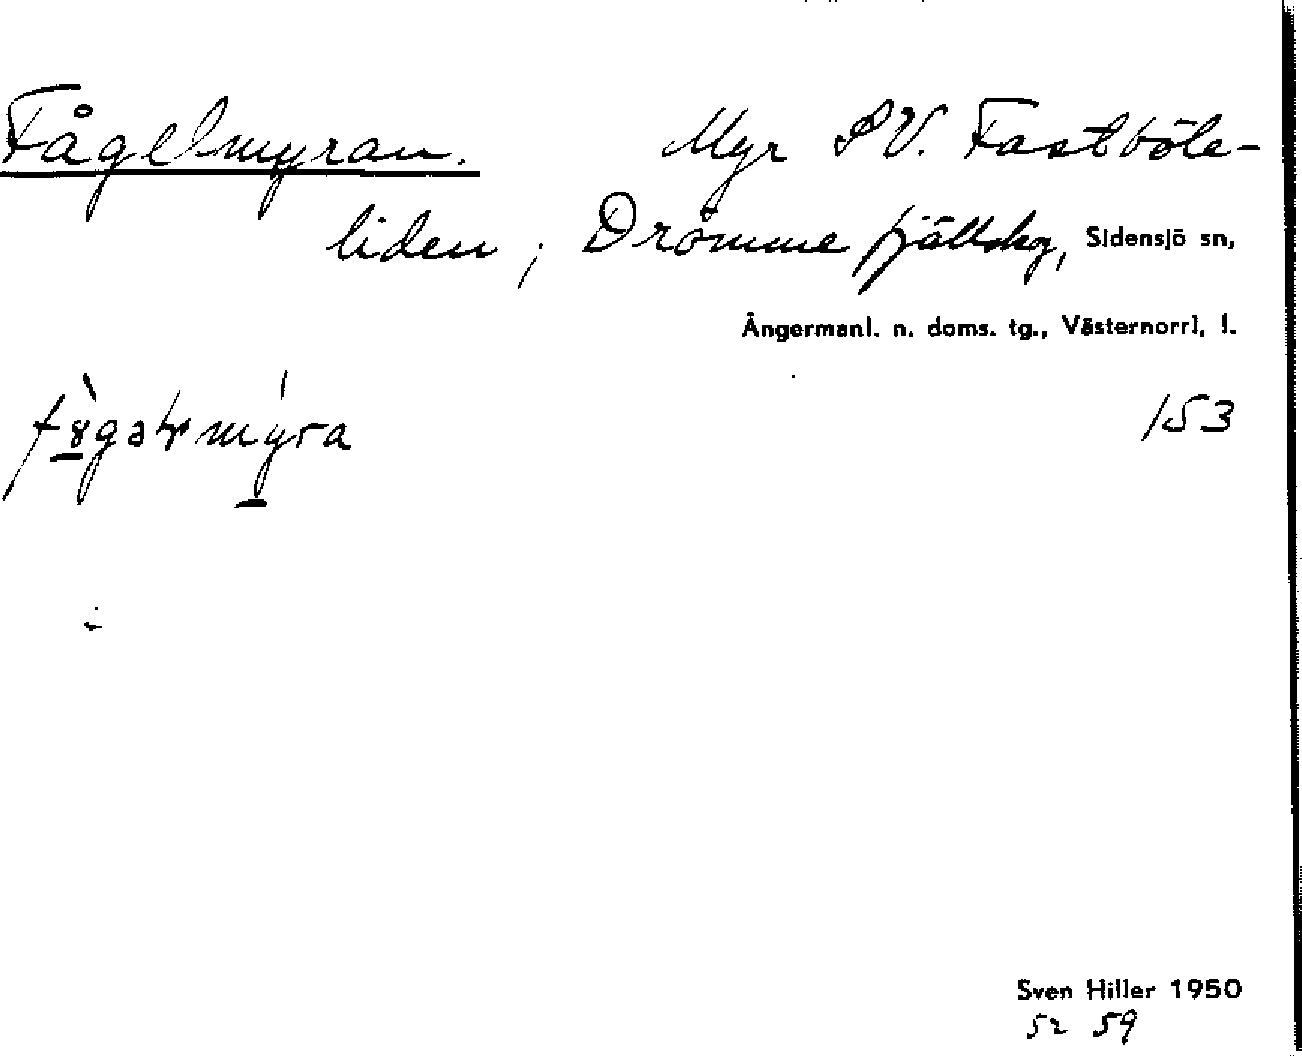 Fågelmyran. Myr SV. Fastböle-
liden; Drömme fjällskg, Sidensjö sn,
Ångermanl. n. doms. tg., Västernorrl. l.
153
Sven Hiller 1950
52 59